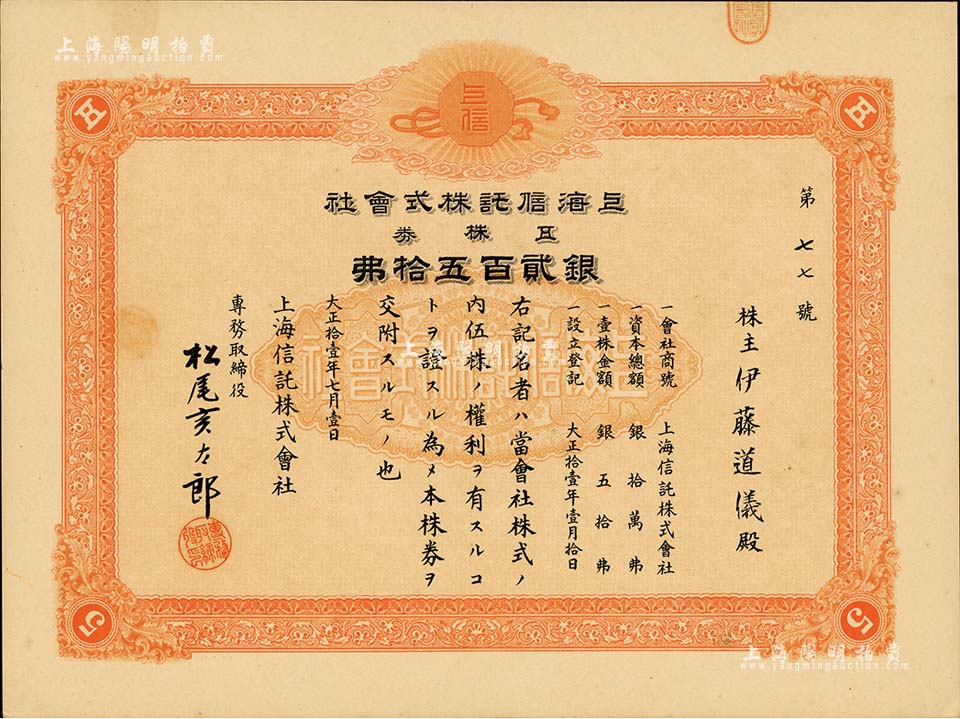 上海陽明拍賣
www.yangmingauction.com
上信
上海信託株式會社
五株券
銀貳百五拾弗
第七七號
株主伊藤道儀殿
一會社商號 上海信託株式會社
一資本總額 銀拾萬弗
一壹株金額 銀五拾弗
一設立登記 大正拾壹年壹月拾日
右記名者ハ當會社株式ノ
内伍株ノ權利ヲ有スルコ
トヲ證スル為メ本株券ヲ
交附スルモノ也
大正拾壹年七月壹日
上海信託株式會社
專務取締役
松尾亥太郎
五
五
5
5
上海信託株式會社
上海陽明拍賣
www.yangmingauction.com
上海陽明拍賣
www.yangmingauction.com